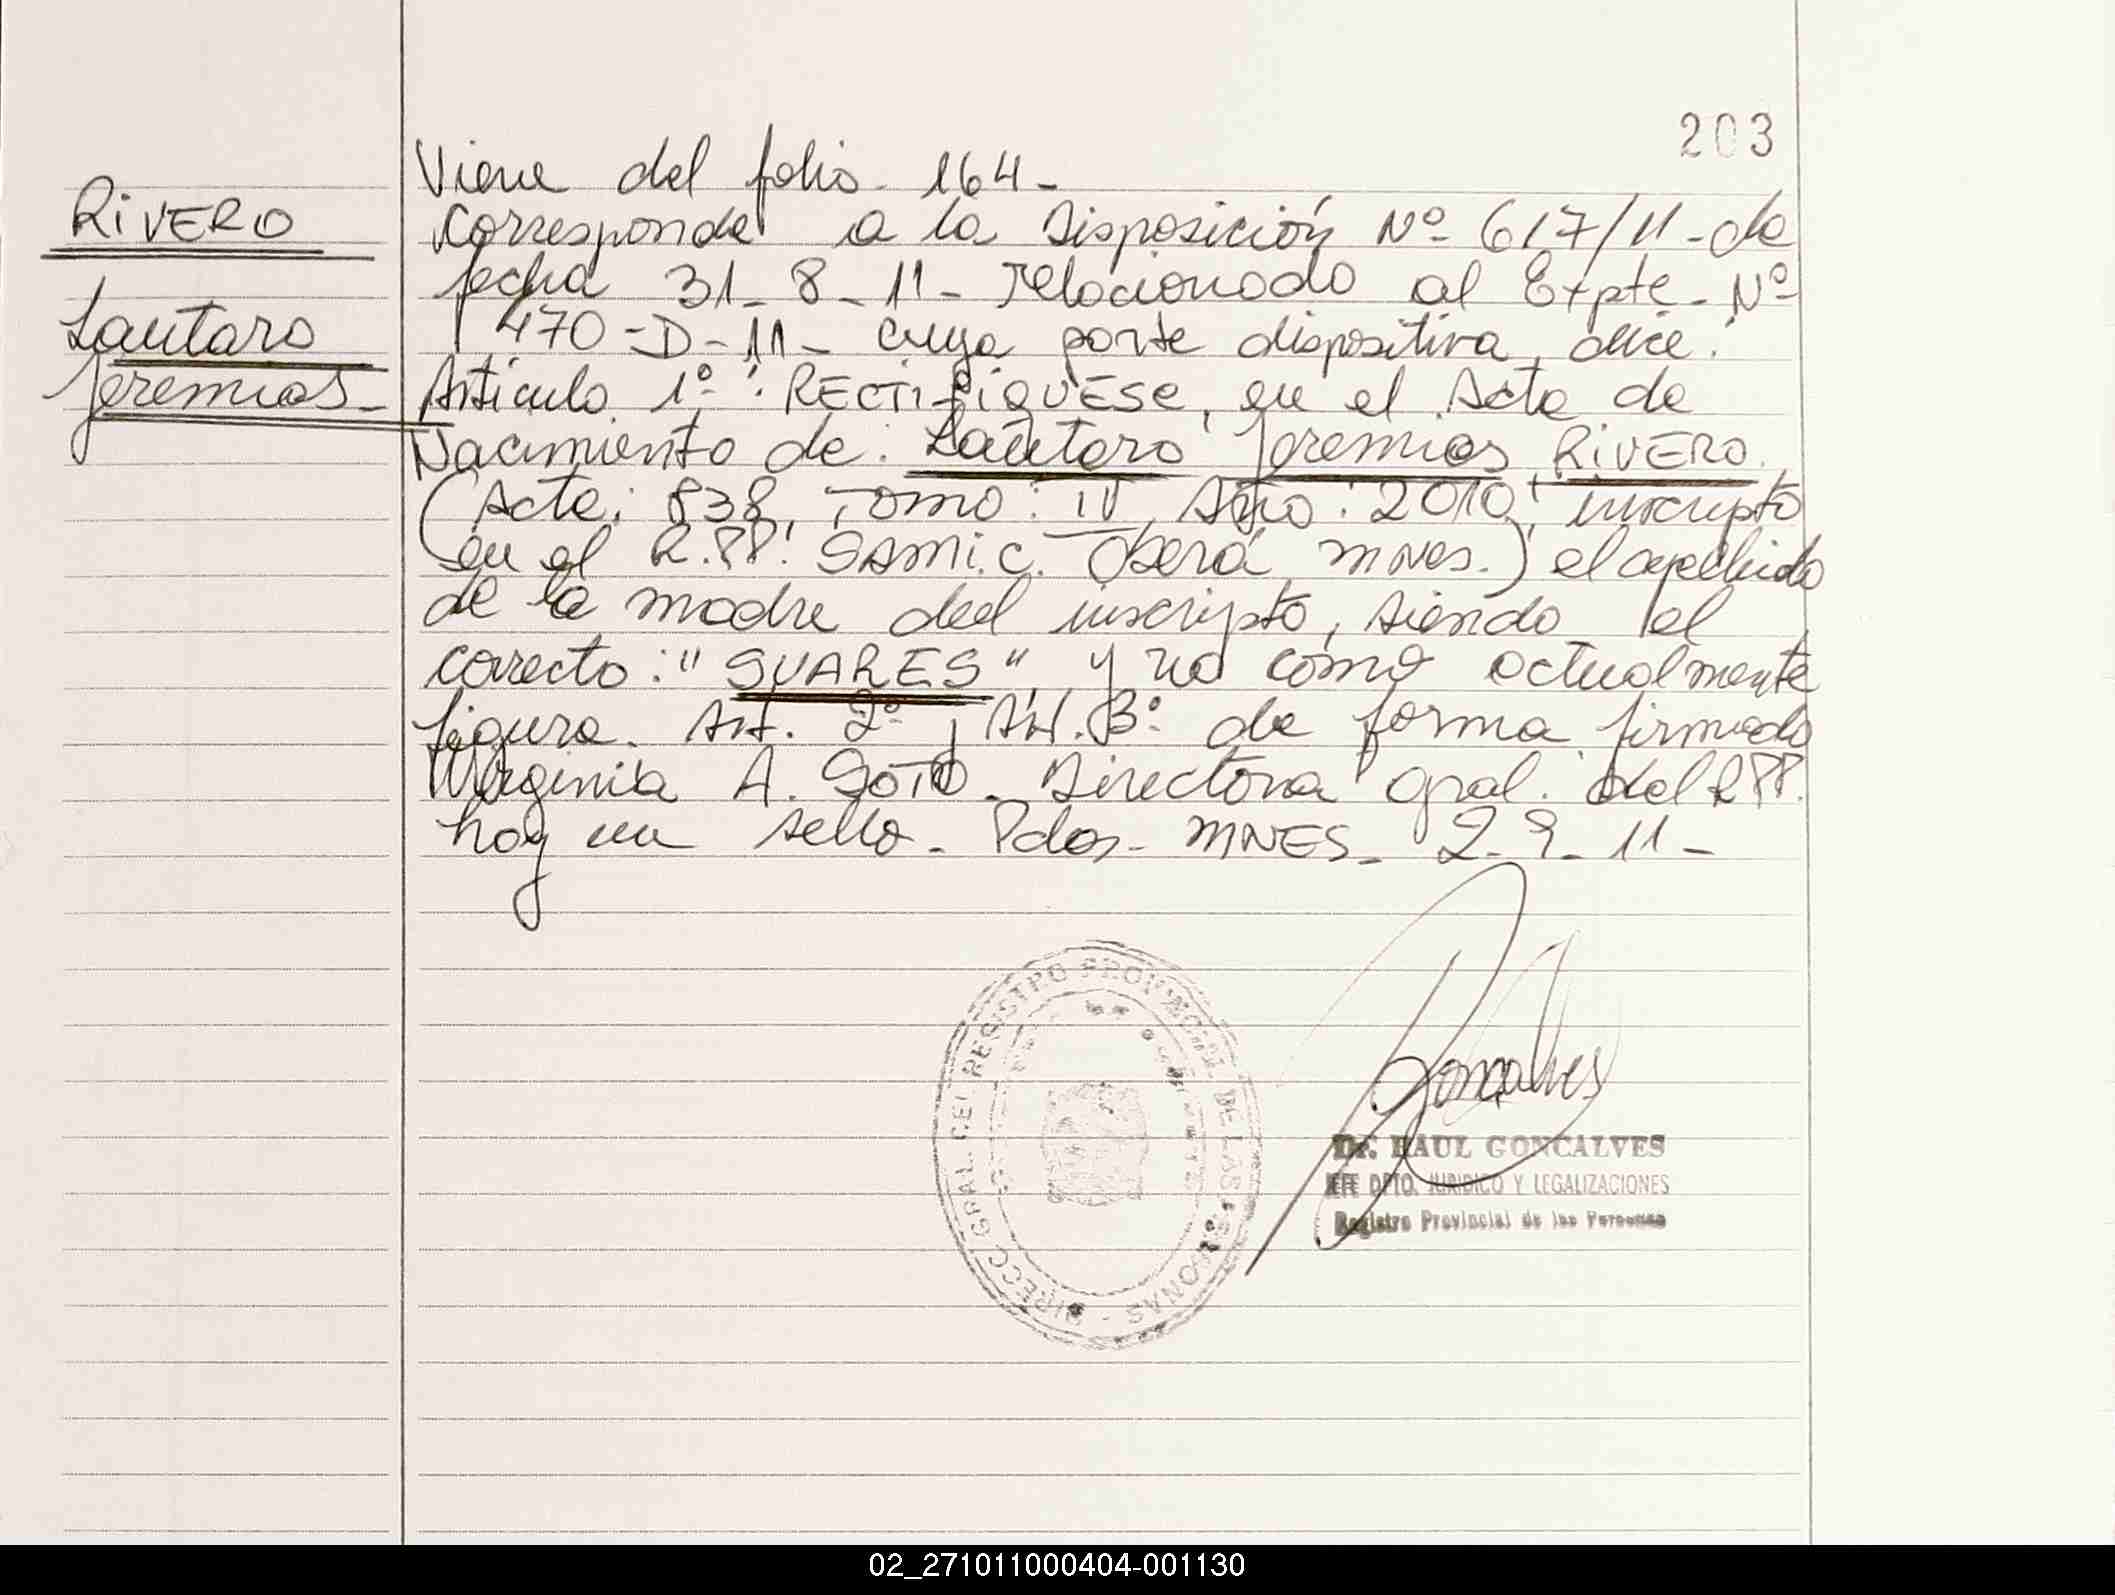 203
RIVERO
Lautaro
Jeremias-
Viene del folio 164-
Corresponde a la Disposición Nº 617/11-de
fecha 31-8-11- relacionado al Expte-Nº
470-D-11- cuya parte dispositiva, dice:
Articulo 1º: RECTIFIQUESE, en el Acta de
Nacimiento de: Lautaro Jeremias RIVERO.
(Acta: 838, Tomo: IV, Año: 2010, inscripto
en el R.PP. SAMI.C. Oberá, MNES.) el apellido
de la madre del inscripto, siendo el
correcto: "SUARES" y no como actualmente
figura. Art. 2º y Art. 3º de forma firmado
Virginia A. SOTO. Directora Gral. del RPP.
hay un sello- Pdas- MNES- 2-9-11-
DIRECC. GRAL. DEL REGISTRO PROVINCIAL DE LAS PERSONAS -
Goncalves
Dr. RAUL GONCALVES
JEFE DPTO. JURIDICO Y LEGALIZACIONES
Registro Provincial de las Personas
02_271011000404-001130